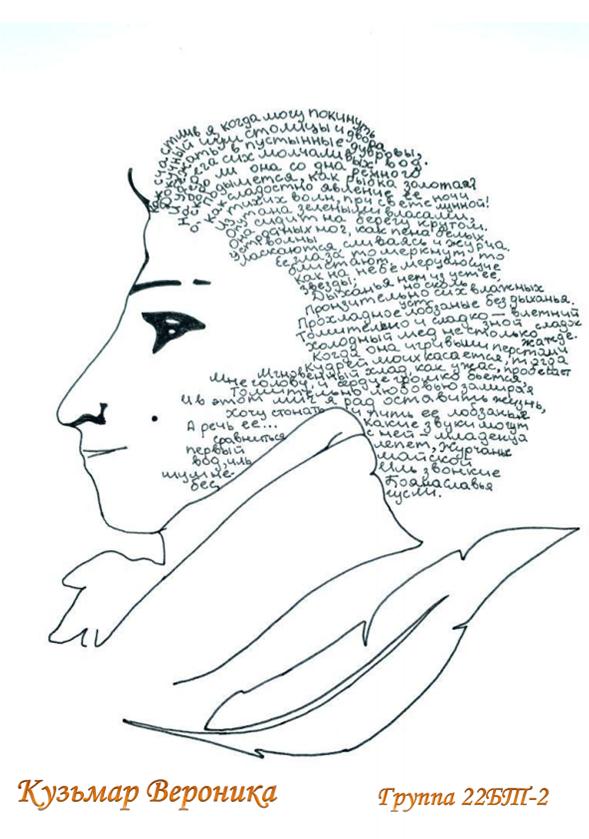 Как счастлив я когда могу покинуть
докучный шум столицы и двора
И убежать в пустынные дубровы,
На берега сих молчаливых вод.
О, скоро ли она со дна речного
Подымется, как рыбка золотая?
Как сладостно явление ее
Из тихих волн, при свете ночи лунной!
Опутана зелеными власами,
Она сидит на берегу крутом.
У стройных ног, как пена белых,
волны
Ласкаются, сливаясь и журча.
Ее глаза то меркнут, то
блистают,
Как на небе мерцающие
звезды;
Дыханья нет из уст ее,
но сколь
Пронзительно сих влажных
уст лобзанье без дыханья.
Прохладное лобзанье — влетний
Томительно и сладко — зной сладок
Холодный мед не столько жажде.
Когда она игривыми перстами
Кудрей моих касается, тогда
Мгновенный хлад, как ужас, пробегает
Мне голову, и сердце громко бьется,
Томительно любовью замирая
И в этот миг я рад оставить жизнь,
Хочу стонать и пить ее лобзанье
А речь ее... Какие звуки могут
сравниться с ней — младенца
первый лепет, Журчанье
вод, иль майской
шум не- иль звонкие
бес, Бояна славья
гусли.
Кузьмар Вероника
Группа 22БТ-2